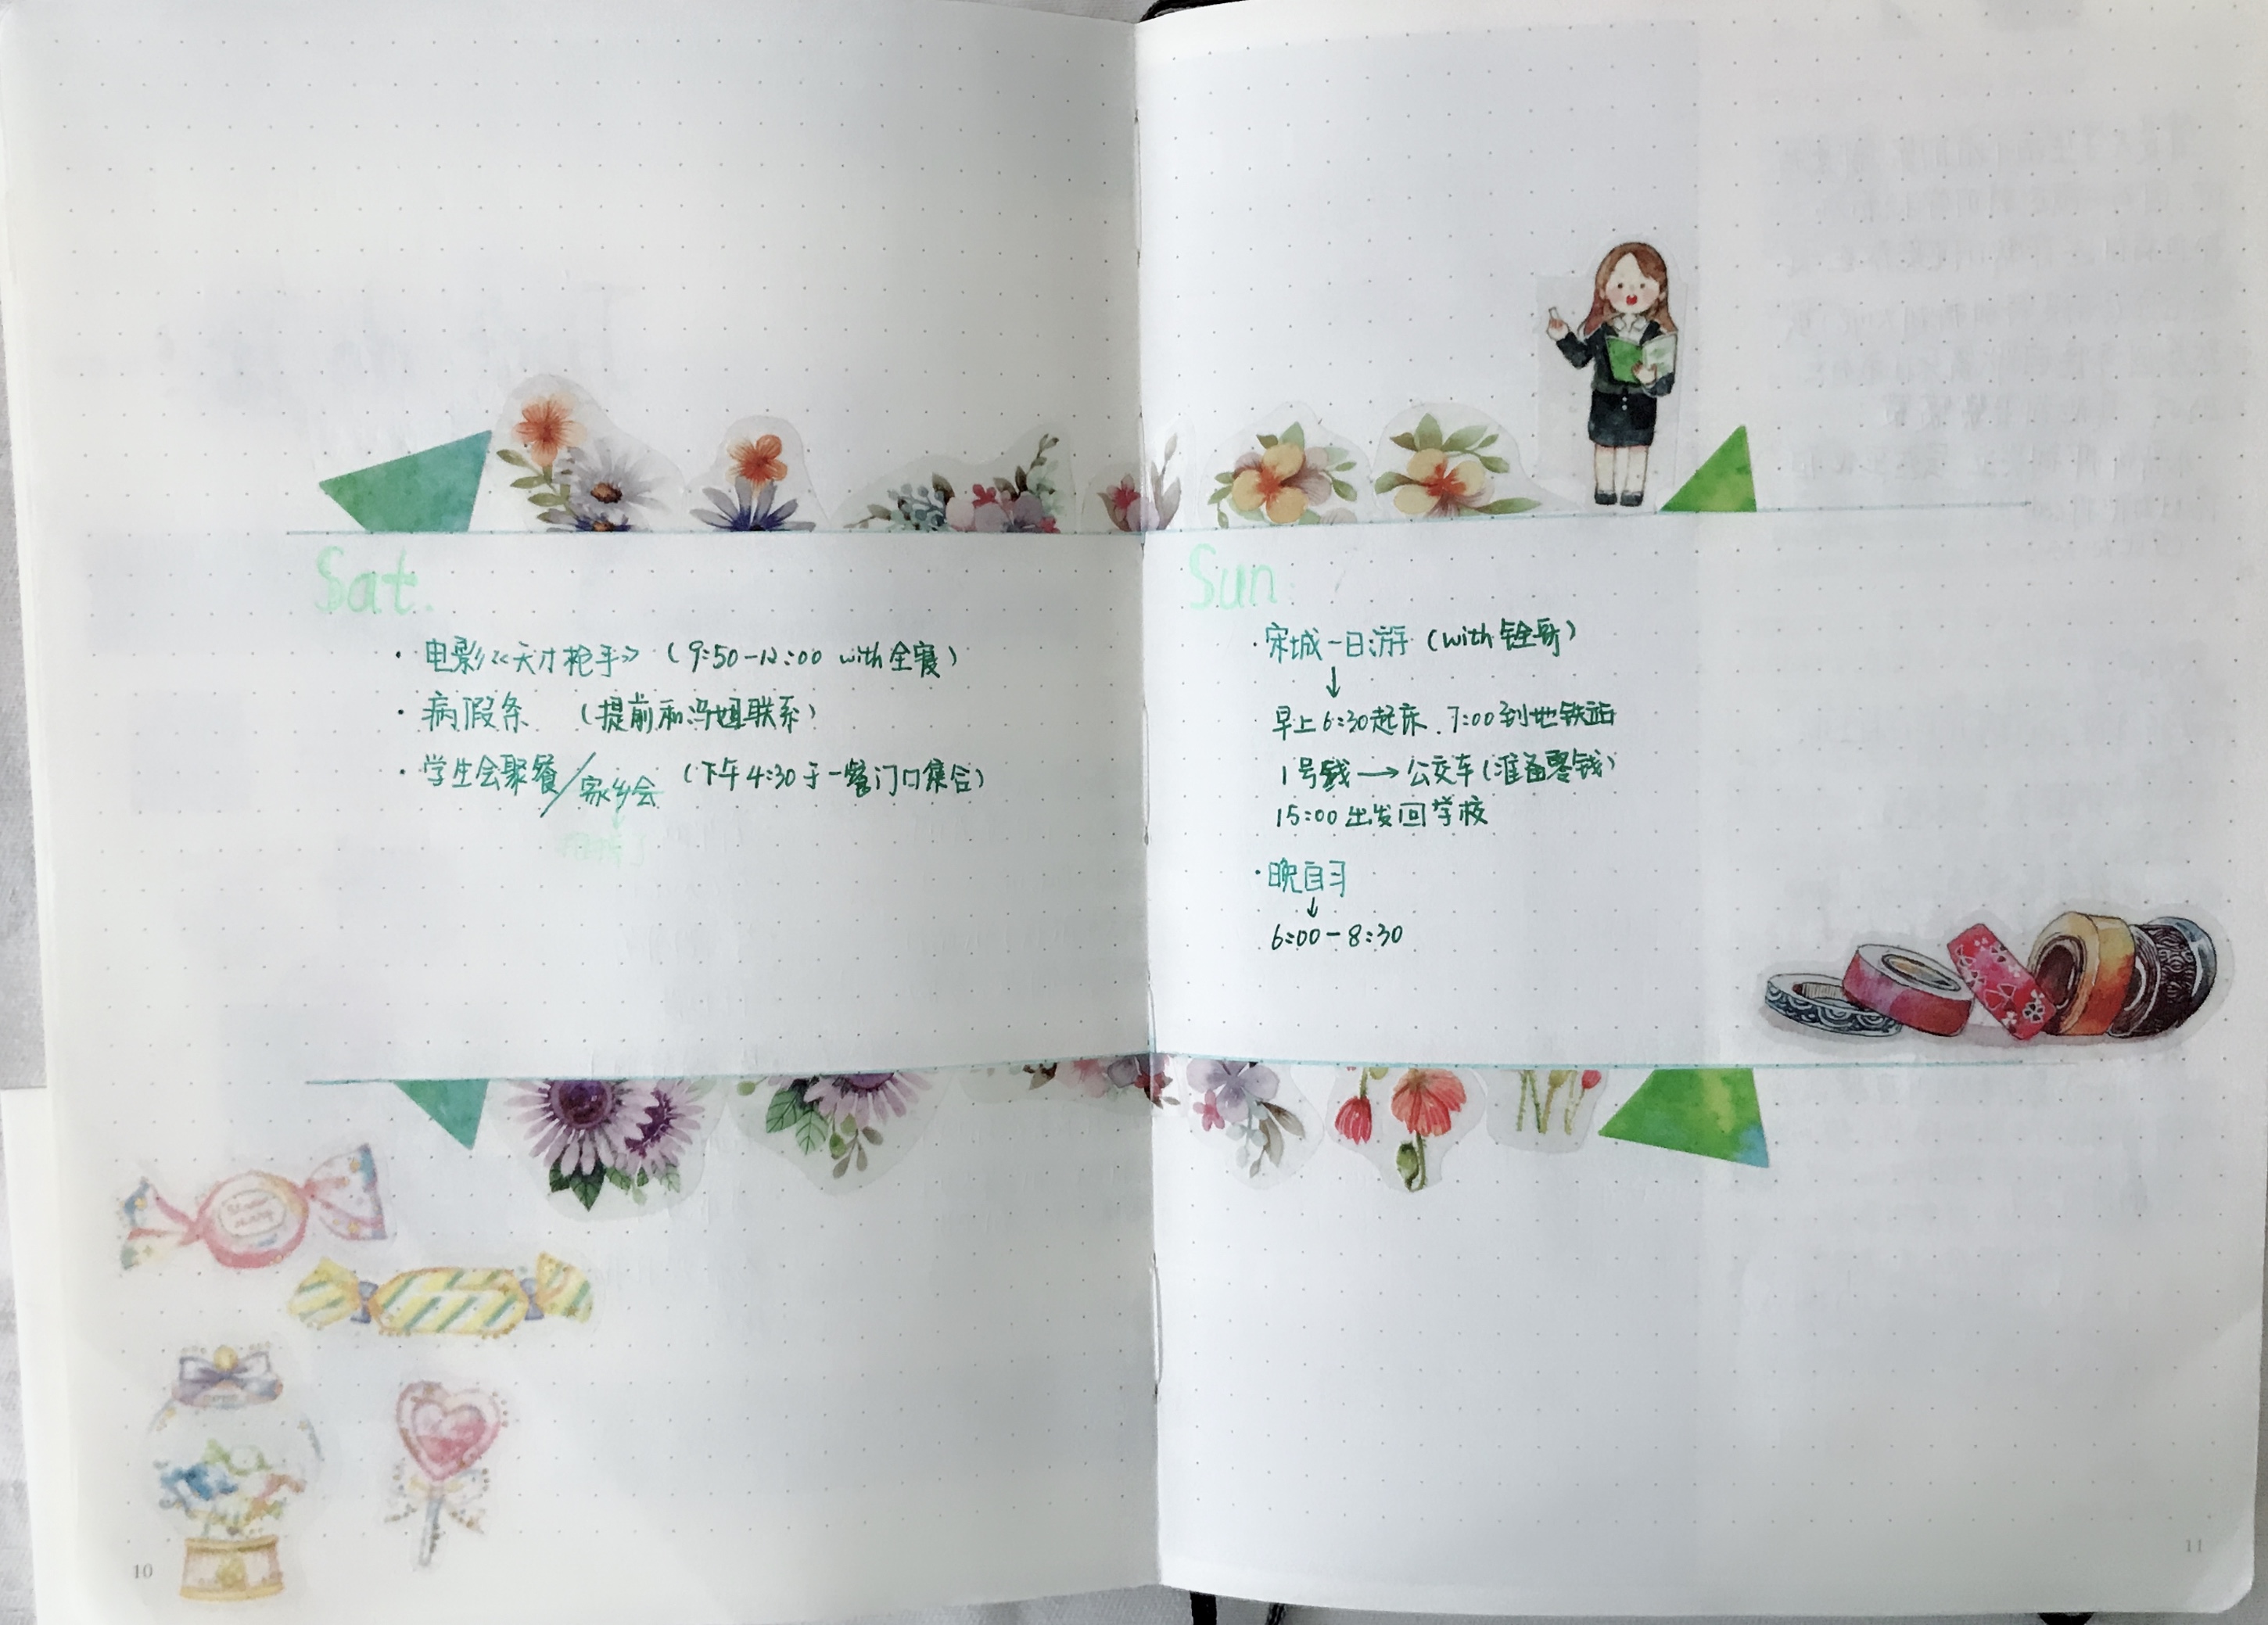 Sat.
· 电影《天才枪手》（9:50-12:00 with全寝）
· 病假条 （提前和冯姐联系）
· 学生会聚餐／家乡会（下午4:30于一餐门口集合）
Sun
· 宋城一日游（with 全哥）
↓
早上6:30起床. 7:00到地铁站
1号线→公交车（准备零钱）
15:00出发回学校
· 晚自习
↓
6:00-8:30
10
11